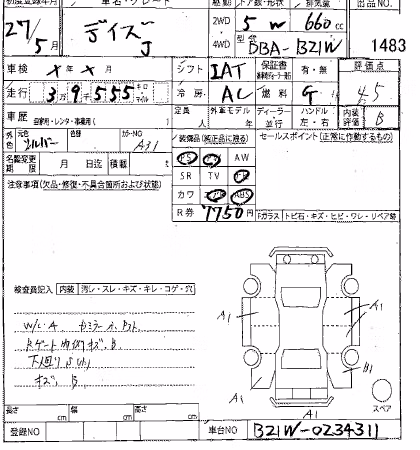 初度登録年月 車名・グレード 駆動 ドア数・形状 排気量 出品NO.
27/5月 デイズ J 2WD 4WD 5 W 660cc
型式 BBA-B21W 1483
車検 X年X月 シフト IAT 保証書 有・無 評価点
走行 3万9千555 キロ マイル 冷房 AC 燃料 G 4.5
車歴 自家用・レンタ・事業用( ) 定員 外車モデル ディーラー 並行 ハンドル 左・右 内装評価 B
外色 元色 シルバー カラーNO A31 装備品(純正品に残る) セールスポイント(正常に作動するもの)
名義変更期限 月 日迄 積載 t PS AW
SR TV
注意事項(欠品・修復・不具合箇所および状態) カワ ABS
R券 7750円 Fガラス トビ石・キズ・ヒビ・ワレ・リペア跡
検査員記入 内装 汚レ・スレ・キズ・キレ・コゲ・穴
W/C・A
キズ、B
A1 A1 B1 A1 A1
スペア
長さ cm 幅 cm 高さ cm
登録NO 車台NO B21W-0234311